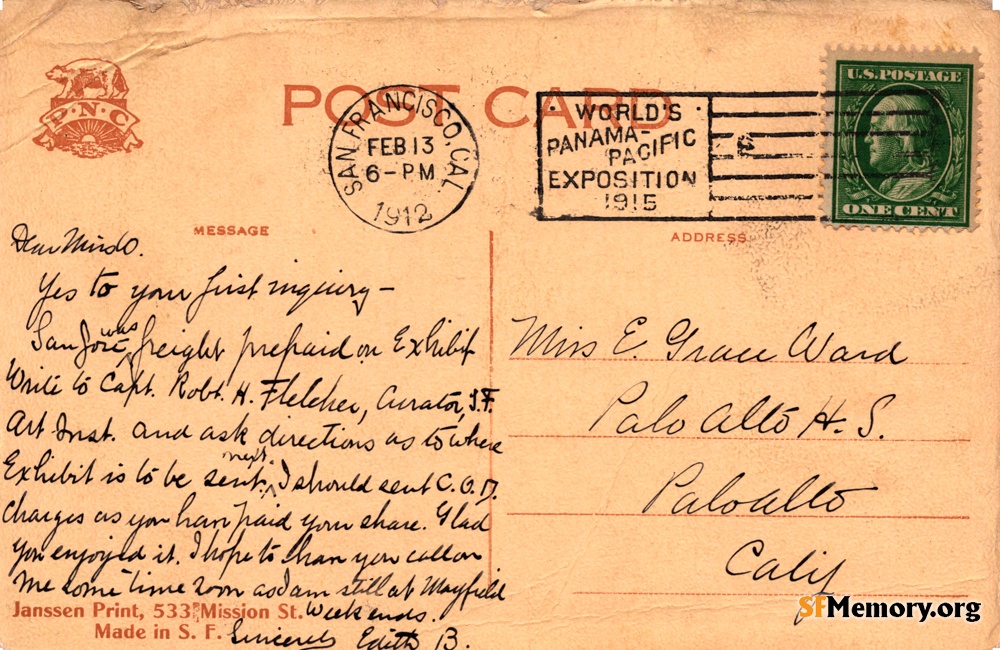 P·N·C
POST CARD
SAN FRANCISCO, CAL.
FEB 13
6-PM
1912
WORLD'S
PANAMA-
PACIFIC
EXPOSITION
1915
U.S. POSTAGE
ONE CENT
MESSAGE
ADDRESS
Dear
Yes to your first inquiry –
was
San Jose, freight prepaid on Exhibit
Write to Capt. Robt. H. Fletcher, Curator, S.F.
Art Inst. and ask directions as to where
next.
Exhibit is to be sent. I should sent C.O.D.
charges as you have paid your share. Glad
you enjoyed it. I hope to have you call on
me some time soon as I am still at Mayfield
week ends.
Sincerely Edith B.
Miss E. Grace Ward
Palo Alto H. S.
Palo Alto
Calif
Janssen Print, 533 Mission St.
Made in S. F.
SFMemory.org